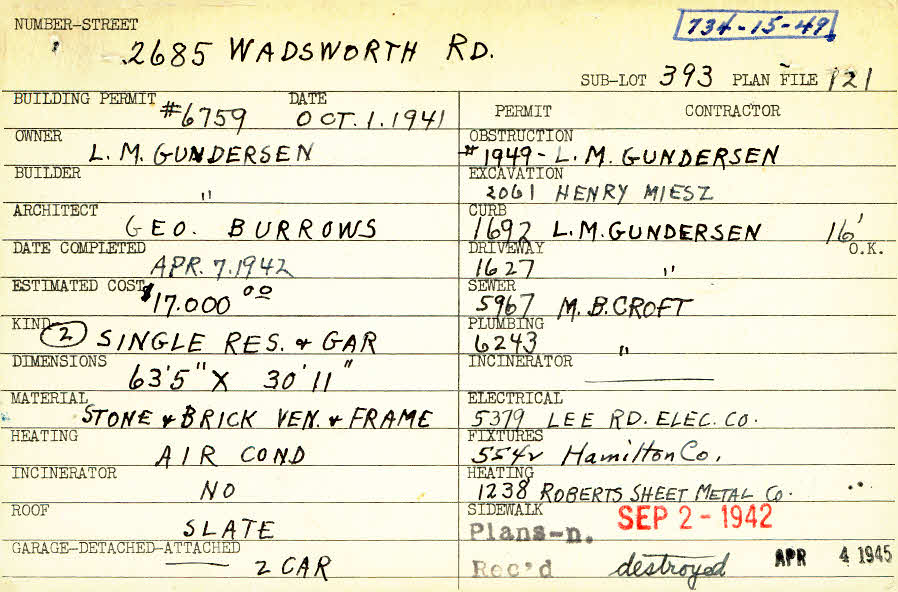 NUMBER-STREET
734-15-49
2685 WADSWORTH RD.
SUB-LOT 393 PLAN FILE 121
BUILDING PERMIT #6759 DATE OCT.1.1941
OWNER L.M. GUNDERSEN
BUILDER "
ARCHITECT GEO. BURROWS
DATE COMPLETED APR.7.1942
ESTIMATED COST $17.000 00
KIND (2) SINGLE RES. & GAR
DIMENSIONS 63'5" X 30'11"
MATERIAL STONE & BRICK VEN. & FRAME
HEATING AIR COND
INCINERATOR NO
ROOF SLATE
GARAGE-DETACHED-ATTACHED 2 CAR
PERMIT CONTRACTOR
OBSTRUCTION #1949- L.M. GUNDERSEN
EXCAVATION 2061 HENRY MIESZ
CURB 1692 L.M. GUNDERSEN 16' O.K.
DRIVEWAY 1627 "
SEWER 5967 M.B. CROFT
PLUMBING 6243 "
INCINERATOR
ELECTRICAL 5379 LEE RD. ELEC. CO.
FIXTURES 5542 Hamilton Co.
HEATING 1238 ROBERTS SHEET METAL Co.
SIDEWALK SEP 2-1942
Plans-n.
Rec'd destroyed APR 4 1945